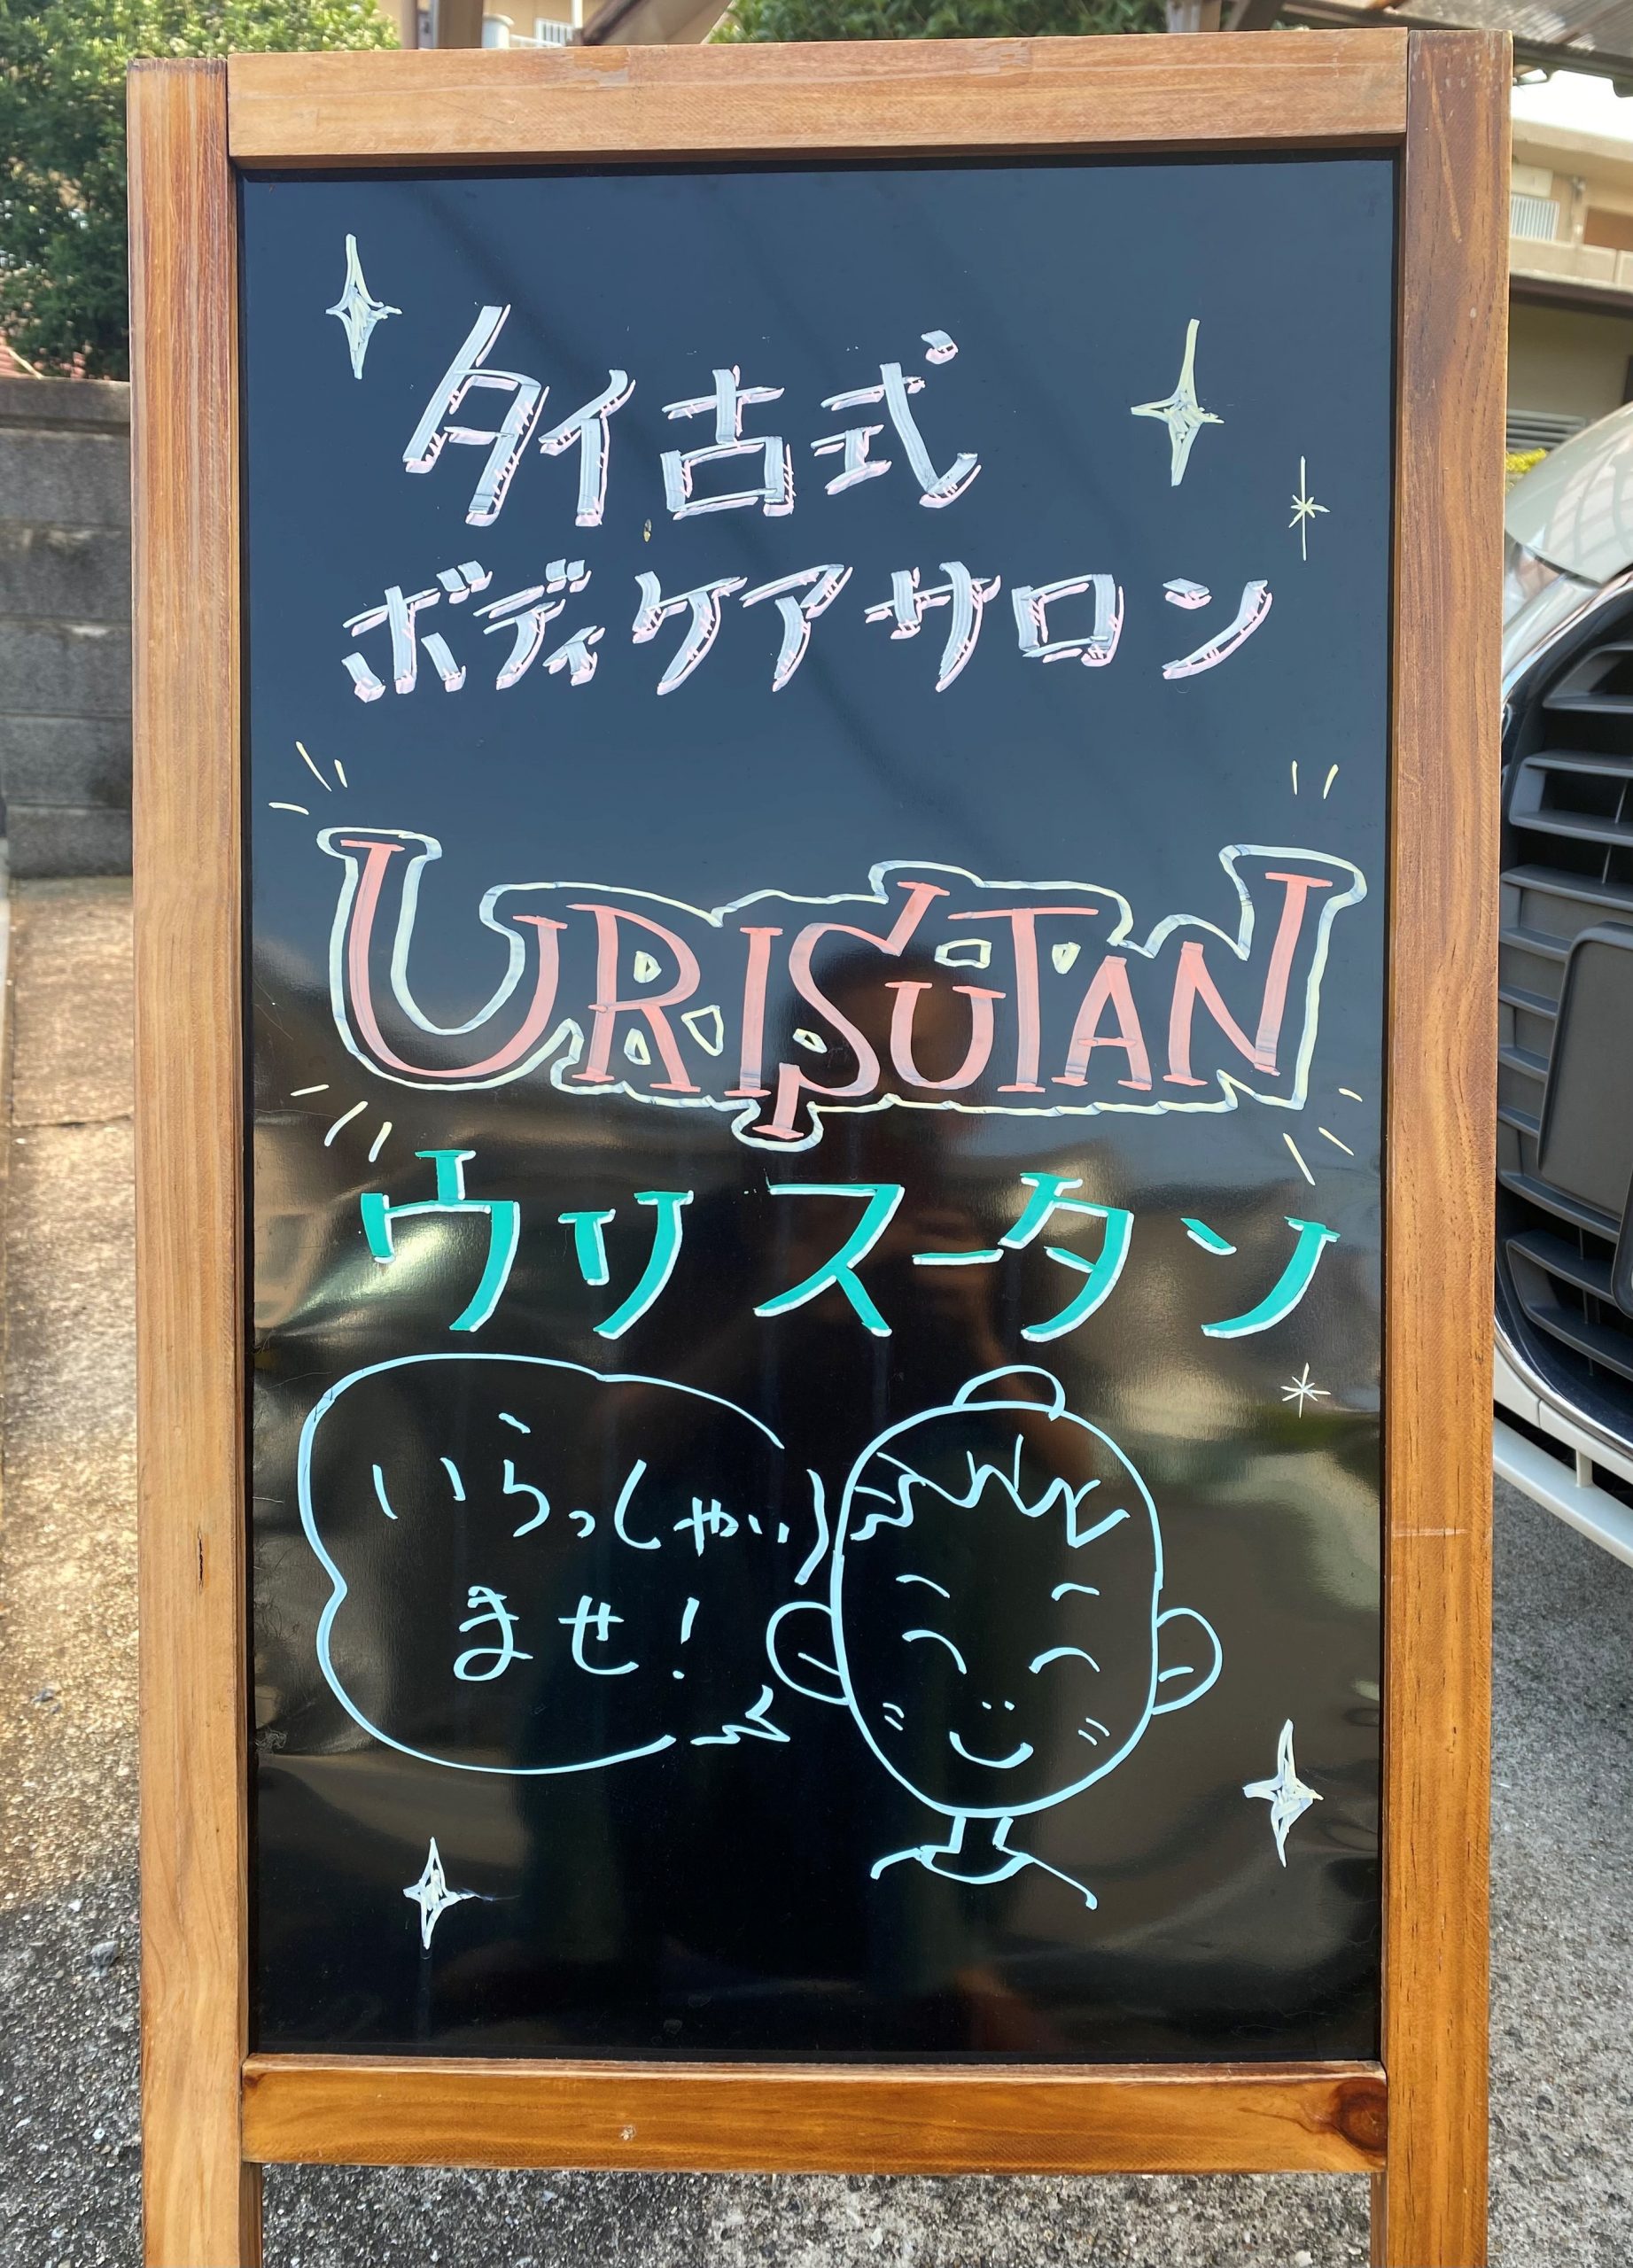 タイ古式
ボディケアサロン
URISUTAN
ウリスータン
いらっしゃい
ませ!